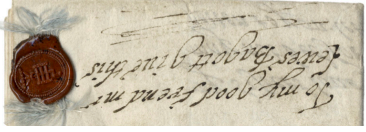 To my good freend mr
Lewes Bagott giue this